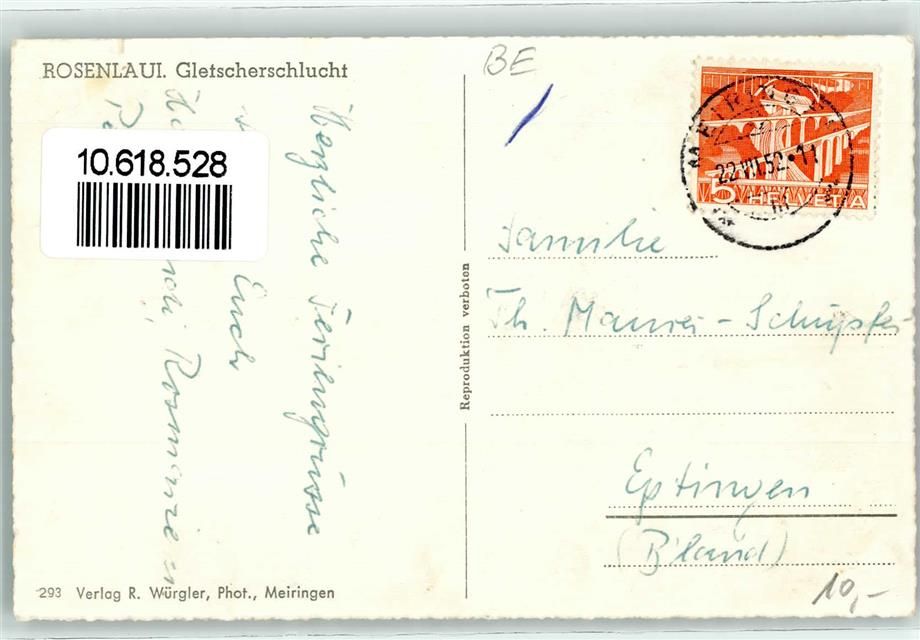 ROSENLAUI. Gletscherschlucht
BE
10.618.528
MEIRINGEN
22.VII.52.11
5 HELVETIA
Herzliche Feriengrüsse
Euch
Rosmarie
Reproduktion verboten
Familie
Th. Maurer-Schüpfer
Eptingen
(B'land)
293 Verlag R. Würgler, Phot., Meiringen
10,-